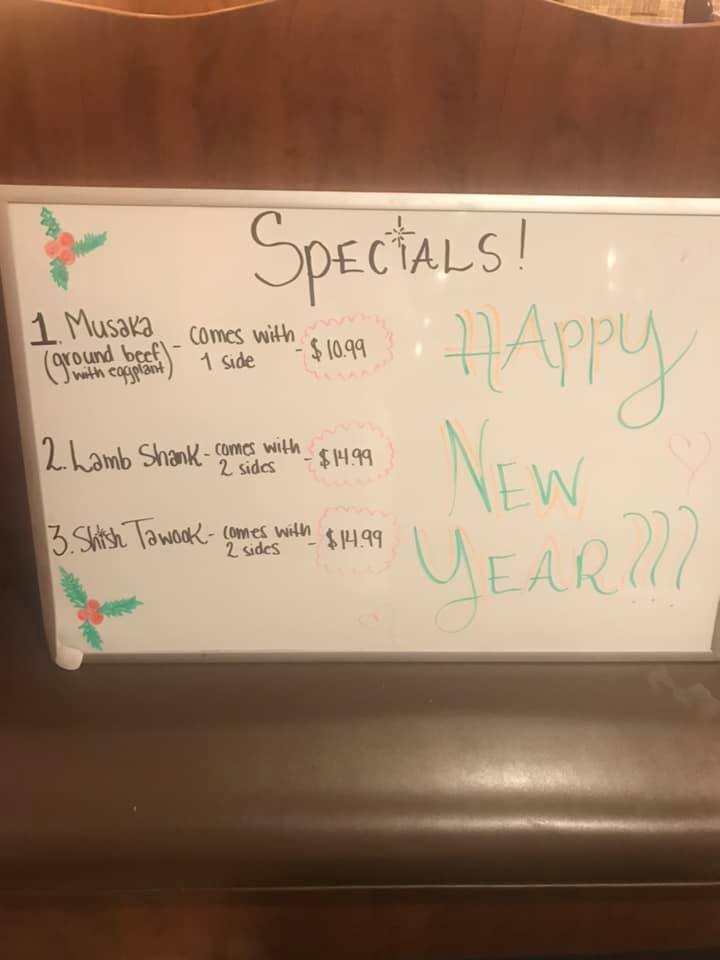 SPECIALS!
1. Musaka - comes with - $10.99
(ground beef) 1 side
with eggplant
2. Lamb Shank - comes with - $14.99
2 sides
3. Shish Tawook - comes with - $14.99
2 sides
HAPPY
NEW
YEAR???